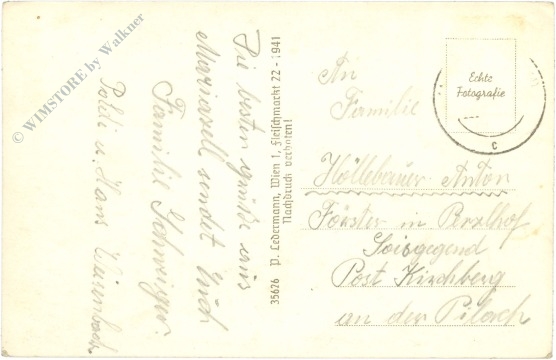 Die besten Grüße aus
Mariazell sendet Euch
Familie Schweiger
Poldi u. Hans
35626 P. Ledermann, Wien 1, Fleischmarkt 22 - 1941
Nachdruck verboten!
Echte
Fotografie
C
An
Familie
Höllebauer Anton
Förster in
Soisgegend
Post Kirchberg
an der Pielach
© WIMSTORE by Walkner